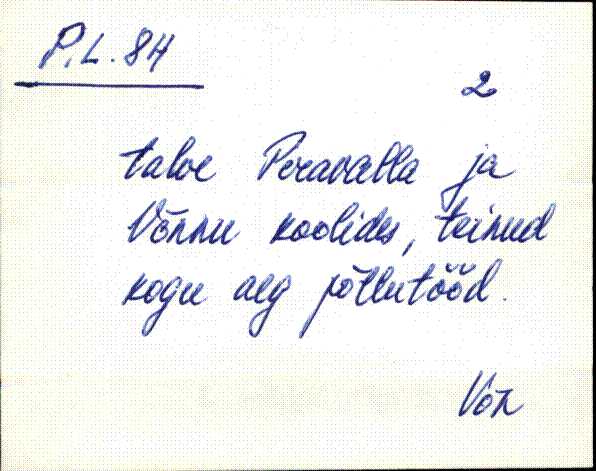 P.L. 84
2
talve Peravalla ja
Võnnu koolides, teinud
kogu aeg põllutööd.
Võn